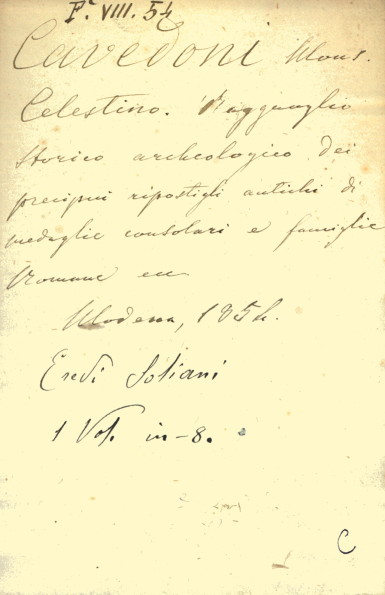 Fª. VIII. 54
Cavedoni Mons.
Celestino. Ragguaglio
storico archeologico dei
precipui ripostigli antichi di
medaglie consolari e famiglie
Romane ec
Modena, 1854.
Eredi Soliani
1 Vol. in-8.
C